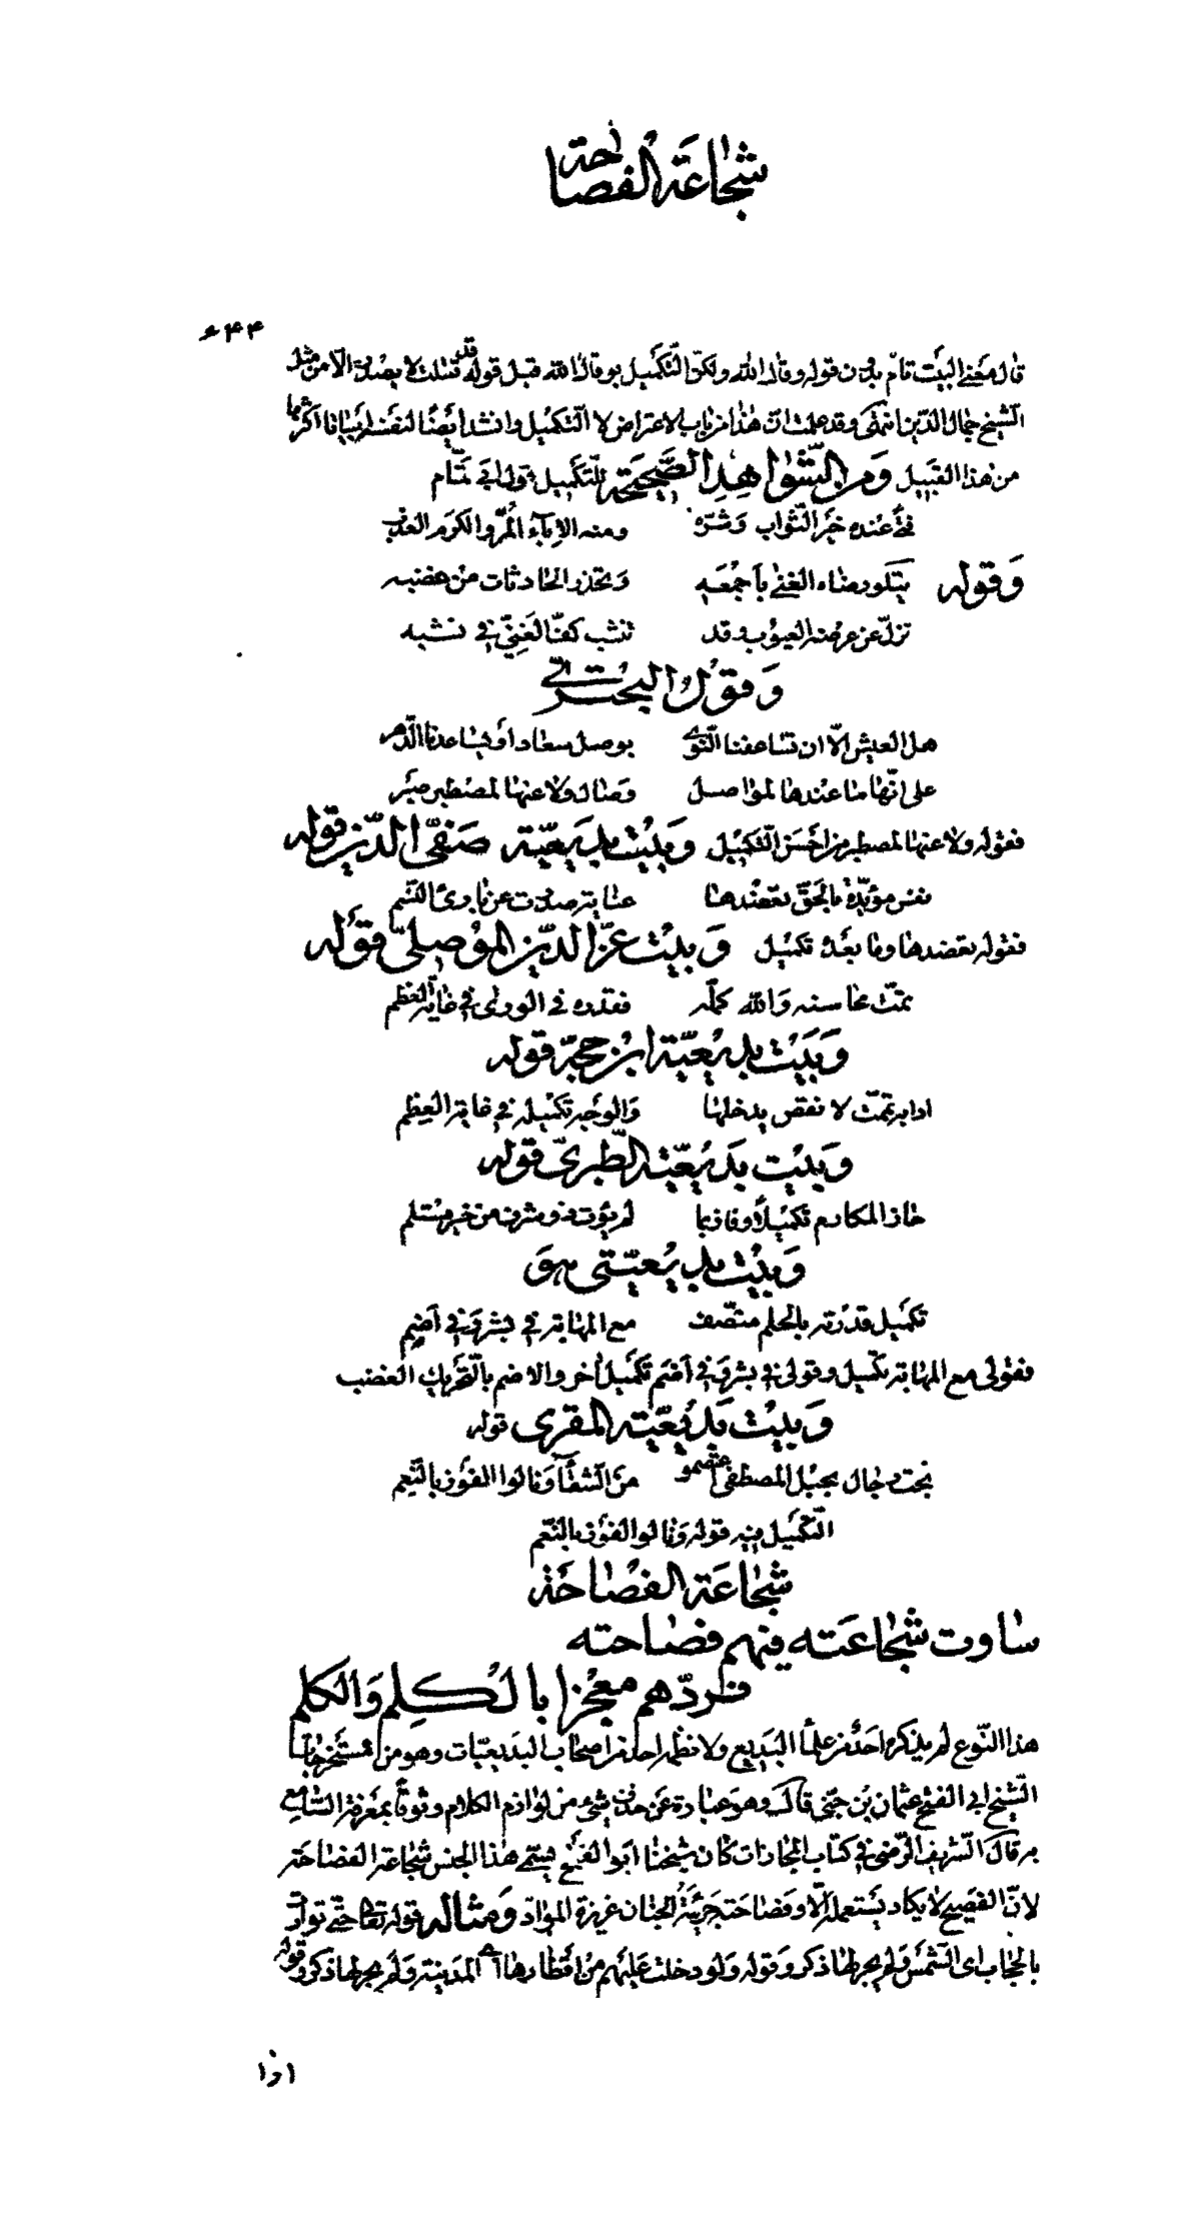 شجاعة الفصاحة
۶۴۴
قال معنى البيت تام بدون قوله وقال الله ولكن التكميل بو قال الله قبل قوله قد قتلت لا يصدر الا من مثل
الشيخ جمال الدين انتهى وقد علمت ان هذا من باب الاعتراض لا التكميل وانشد ايضا لنفسه ابياتا اكثرها
من هذا القبيل ومن الشواهد الصحيحة للتكميل قول ابي تمام
فتى عنده خير الثواب وشره ومنه الاباء المر والكرم العذب
وقوله يتلو رضاه الغنى باجمعه وتحذر الحادثات من غضبه
تزل عن عرضه العيوب وقد تنشب كف الغني في نشبه
وقول البحتري
هل العيش الا ان تساعفنا النوى بوصل سعاد او يساعدنا الدهر
على انها ما عندها لمواصل وصال ولا عنها لمصطبر صبر
فقوله ولا عنها لمصطبر من احسن التكميل وبيت بديعية صفي الدين قوله
نفس مؤيدة بالحق تعضدها عناية صدرت عن بارئ النسم
فقوله تعضدها وما بعده تكميل وبيت عز الدين الموصلي قوله
تمت محاسنه والله كمله فقدره في الورى في غاية العظم
وبيت بديعية ابن حجة قوله
ادابه تمت لا نقص يدخلها والوجه تكميله في غاية العظم
وبيت بديعية الطبري قوله
حاز المكارم تكميلا وفاز بما لم يؤت ذو شرف من خير مستلم
وبيت بديعيتي هو
تكميل قدرته بالحلم متصف مع المهابة في بشر وفي اضم
فقولي مع المهابة تكميل وقولي في بشر وفي اضم تكميل اخر والاضم بالتحريك الغضب
وبيت بديعية المقري قوله
نجت رجال بحبل المصطفى اعتصموا من الشقا ونالوا الفوز بالنعم
التكميل فيه قوله ونالوا الفوز بالنعم
شجاعة الفصاحة
ساوت شجاعته فيهم فصاحته
فردهم معجزا بالكلم والكلم
هذا النوع لم يذكره احد من علماء البديع ولا نظمه احد من اصحاب البديعيات وهو من مستخرجات
الشيخ ابي الفتح عثمان بن جني قال وهو عبارة عن حذف شيء من لوازم الكلام وثوقا بمعرفة السامع
به قال الشريف الرضي في كتاب المجازات كان شيخنا ابو الفتح يسمى هذا الجنس شجاعة الفصاحة
لان الفصيح لا يكاد يستعمله الا وفصاحته جريئة الجنان غزيرة المواد ومثاله قوله تعالى حتى توارت
بالحجاب اى الشمس ولم يجر لها ذكر وقوله ولو دخلت عليهم من اقطارها اى المدينة ولم يجر لها ذكر وقوله
اذا